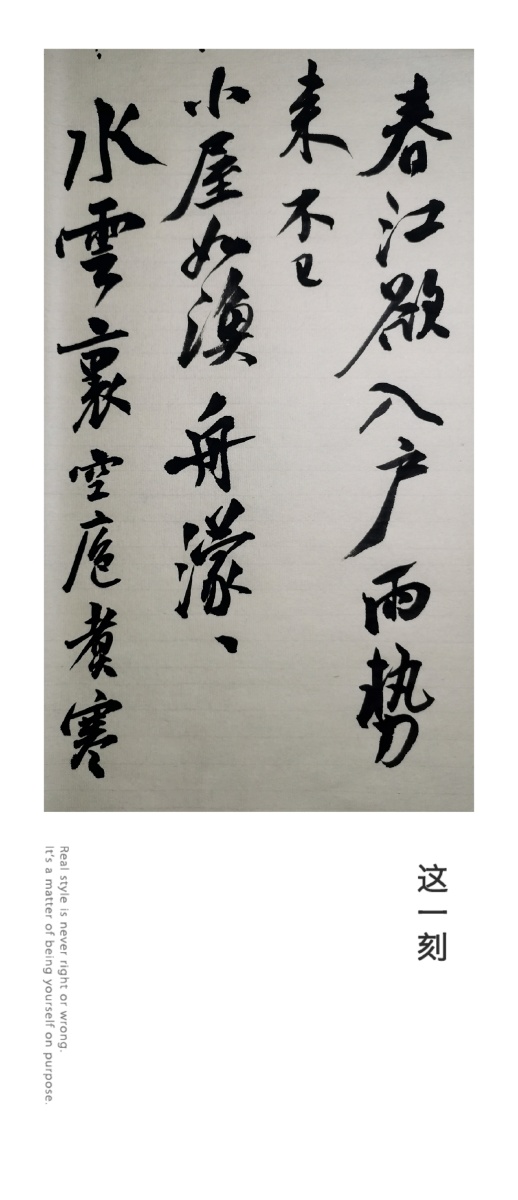 春江欲入户雨势
来不已
小屋如渔舟濛、
水雲裏空庖煑寒
这一刻
Real style is never right or wrong.
It's a matter of being yourself on purpose.